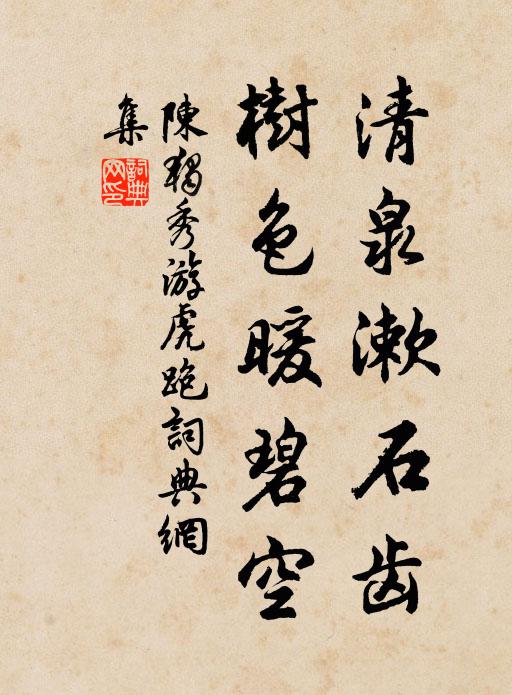 清泉漱石齿
樹色暖碧空
陳獨秀游虎跑詞典網
集
詞典網印